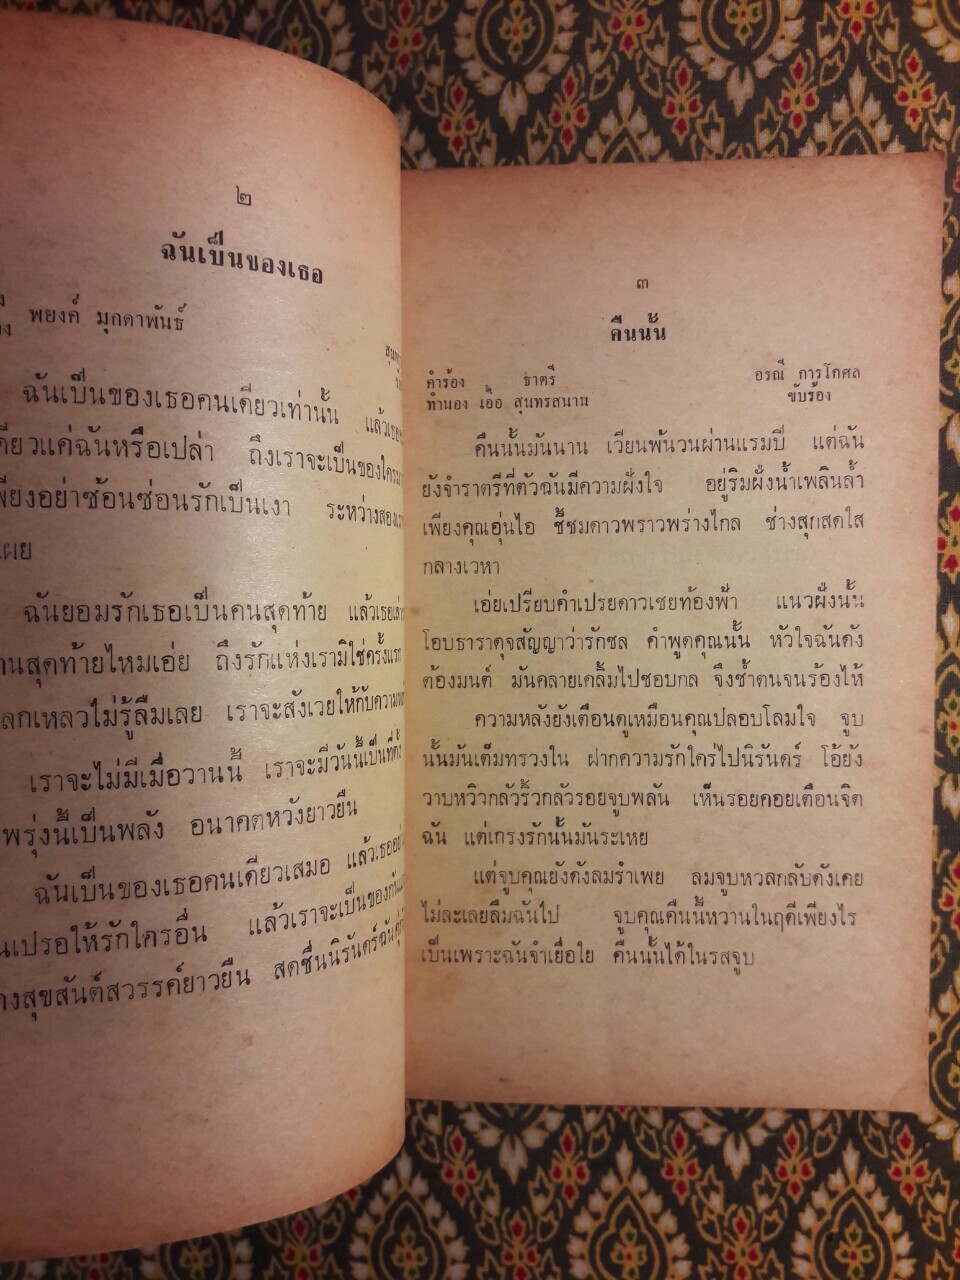 ๒
ฉันเป็นของเธอ
พยงค์ มุกดาพันธ์
ฉันเป็นของเธอคนเดียวเท่านั้น แล้วเธอ
แค่ฉันหรือเปล่า ถึงเราจะเป็นของใคร
อย่าซ้อนซ่อนรักเป็นเงา ระหว่างสอง
เผย
ฉันยอมรักเธอเป็นคนสุดท้าย แล้วเธอ
สุดท้ายไหมเอ่ย ถึงรักแห่งเรามิใช่ครั้งแรก
เหลวไม่รู้ลืมเลย เราจะสังเวยให้กับความ
เราจะไม่มีเมื่อวานนี้ เราจะมีวันนี้เป็นที่ตั้ง
พรุ่งนี้เป็นพลัง อนาคตหวังยาวยืน
ฉันเป็นของเธอคนเดียวเสมอ แล้วเธอ
เปรอให้รักใครอื่น แล้วเราจะเป็นของกัน
สุขสันต์สวรรค์ยาวยืน สดชื่นนิรันดร์
๓
คืนนั้น
คำร้อง ธาตรี อรณี การโกศล
ทำนอง เอื้อ สุนทรสนาน ขับร้อง
คืนนั้นมันนาน เวียนพ้นวนผ่านแรมปี แต่ฉัน
ยังจำราตรีที่ตัวฉันมีความฝั่งใจ อยู่ริมฝั่งน้ำเพลินล้ำ
เพียงคุณอุ่นไอ ชี้ชมดาวพราวพร่างไกล ช่างสุกสดใส
กลางเวหา
เอ่ยเปรียบคำเปรยดาวเชยท้องฟ้า แนวฝั่งนั้น
โอบธาราดุจสัญญาว่ารักชล คำพูดคุณนั้น หัวใจฉันดัง
ต้องมนต์ มันคลายเคลิ้มไปชอบกล จึงช้ำตนจนร้องไห้
ความหลังยังเตือนดูเหมือนคุณปลอบโลมใจ จูบ
นั้นมันเต็มทรวงใน ฝากความรักใคร่ไปนิรันดร์ โอ้ยัง
วาบหวิวกลัวริ้วกลัวรอยจูบพลัน เห็นรอยคอยเตือนจิต
ฉัน แต่เกรงรักนั้นมันระเหย
แต่จูบคุณยังดังลมรำเพย ลมจูบหวลกลับดังเคย
ไม่ละเลยลืมฉันไป จูบคุณคืนนี้หวานในฤดีเพียงไร
เป็นเพราะฉันจำเยื่อใย คืนนั้นได้ในรสจูบ